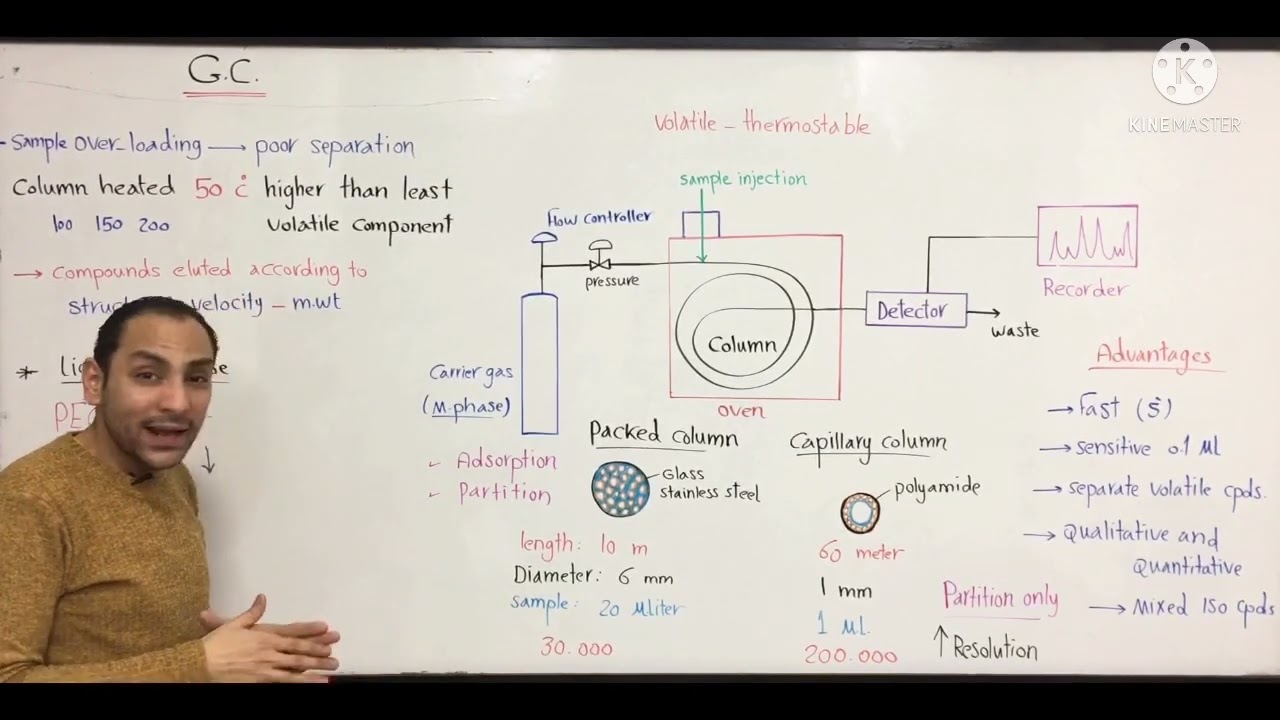 G.C.
- Sample over-loading → poor separation
Column heated 50 c° higher than least
100 150 200 volatile component
→ compounds eluted according to
velocity - m.wt
*
Volatile - thermostable
sample injection
Flow controller
pressure
Carrier gas
(M.phase)
Column
oven
Detector
waste
Recorder
- Adsorption
- Partition
Packed column
Glass
stainless steel
length: 10 m
Diameter: 6 mm
Sample: 20 μliter
30.000
Capillary column
polyamide
60 meter
1 mm
1 μl.
200.000
Partition only
↑ Resolution
Advantages
→ Fast (s)
→ sensitive 0.1 μl
→ separate volatile cpds.
→ Qualitative and
Quantitative
→ Mixed 150 cpds
K
KINEMASTER